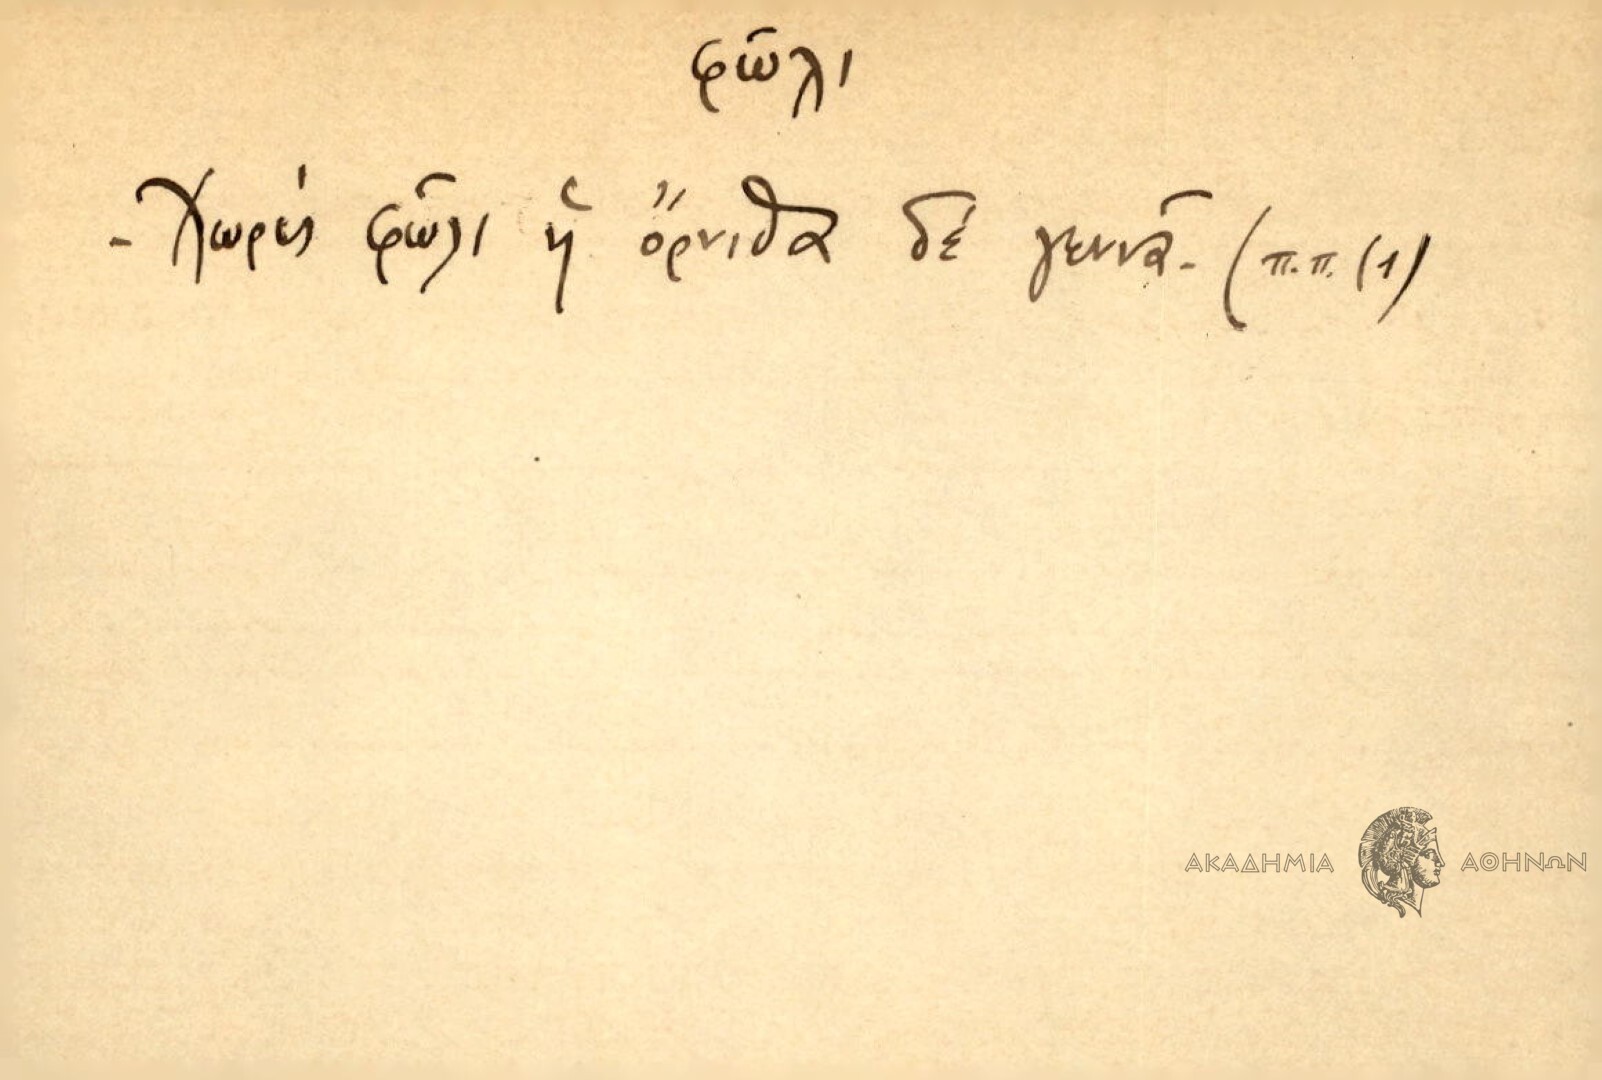 φῶλι
- Χωρίς φῶλι ἡ ὄρνιθα δέ γεννᾶ - (π.π. (1)
ΑΚΑΔΗΜΙΑ ΑΘΗΝΩΝ